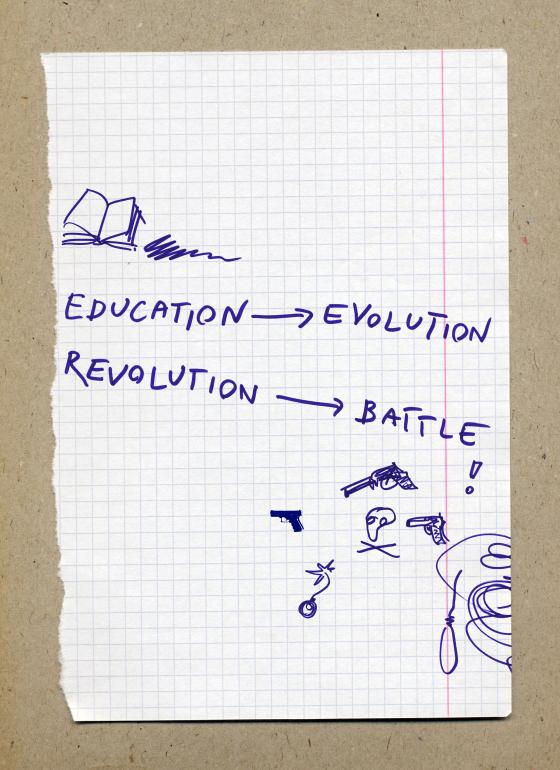 EDUCATION → EVOLUTION
REVOLUTION → BATTLE
!